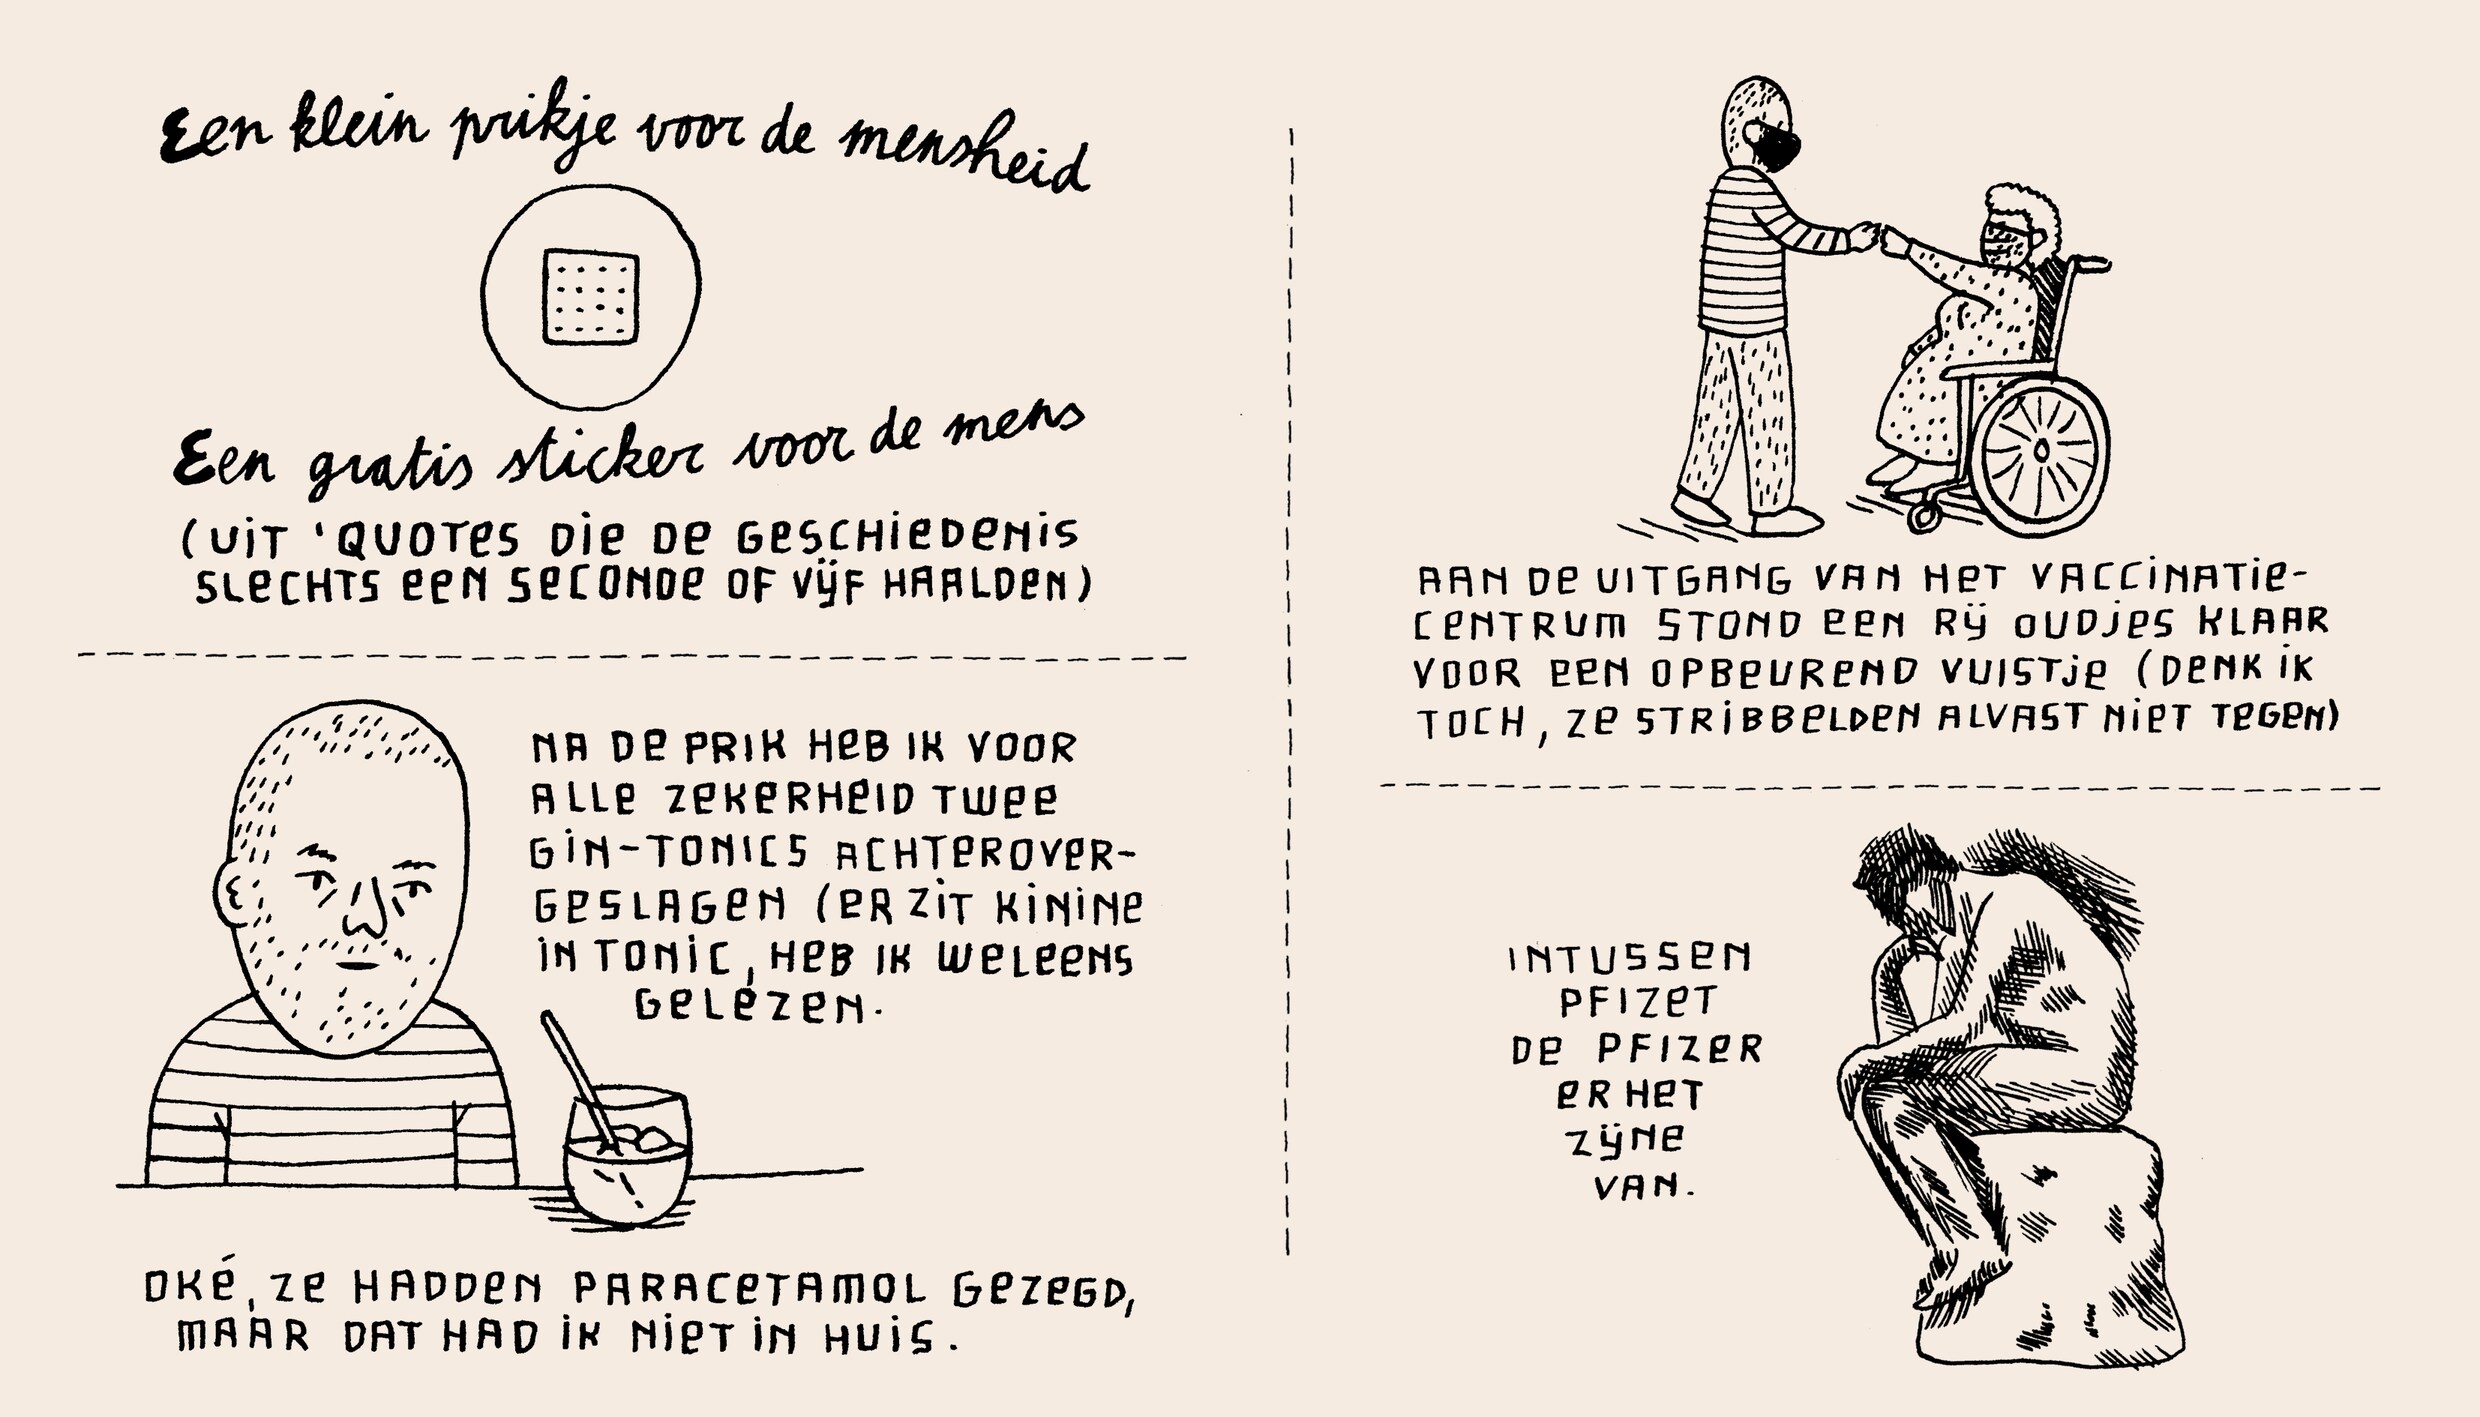 Een klein prikje voor de mensheid
Een gratis sticker voor de mens
(UIT 'QUOTES DIE DE GESCHIEDENIS
SLECHTS EEN SECONDE OF VIJF HAALDEN)
NA DE PRIK HEB IK VOOR
ALLE ZEKERHEID TWEE
GIN-TONICS ACHTEROVER-
GESLAGEN (ER ZIT KININE
IN TONIC, HEB IK WELEENS
GELEZEN.
OKÉ, ZE HADDEN PARACETAMOL GEZEGD,
MAAR DAT HAD IK NIET IN HUIS.
AAN DE UITGANG VAN HET VACCINATIE-
CENTRUM STOND EEN RIJ OUDJES KLAAR
VOOR EEN OPBEUREND VUISTJE (DENK IK
TOCH, ZE STRIBBELDEN ALVAST NIET TEGEN)
INTUSSEN
PFIZET
DE PFIZER
ER HET
ZIJNE
VAN.